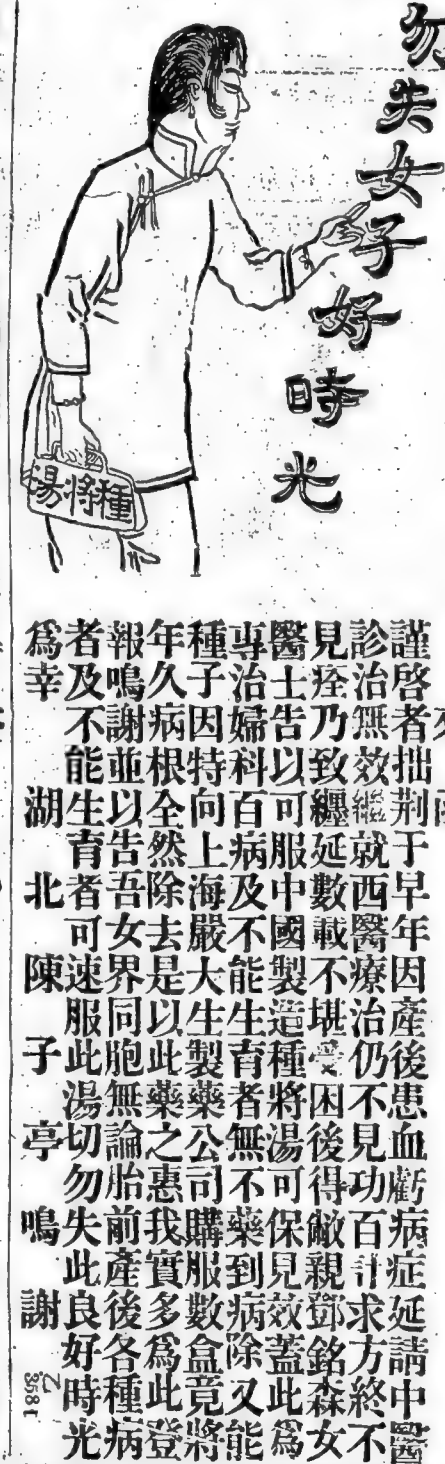 勿失女子好時光
種將湯
謹啓者拙荆于早年因產後患血虧病症延請中醫
診治無效繼就西醫療治仍不見功百計求方終不
見痊乃致纏延數載不堪受困後得敝親鄧銘森女
醫士告以可服中國製造種將湯可保見效蓋此爲
專治婦科百病及不能生育者無不藥到病除又能
種子因特向上海嚴大生製藥公司購服數盒竟將
年久病根全然除去是以此藥之惠我實多爲此登
報鳴謝並以告吾女界同胞無論胎前產後各種病
者及不能生育者可速服此湯切勿失此良好時光
爲幸　湖北陳子亭鳴謝　乙3581